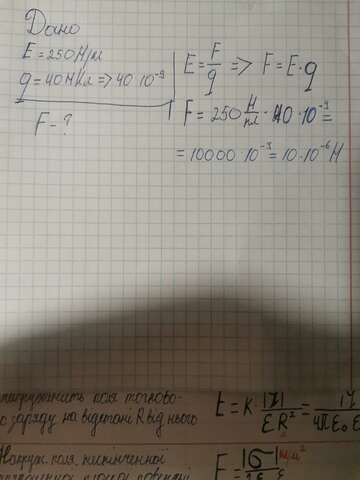 Дано
E = 250 Н/Кл
q = 40 нКл => 40 · 10⁻⁹
F - ?
E = F/q => F = E · q
F = 250 Н/Кл · 40 · 10⁻⁹ =
= 10000 · 10⁻⁹ = 10 · 10⁻⁶ Н
поля точково-
заряду на відстані R від нього
E = K · |q| / ε R² =
Напруж. поля нескінченної